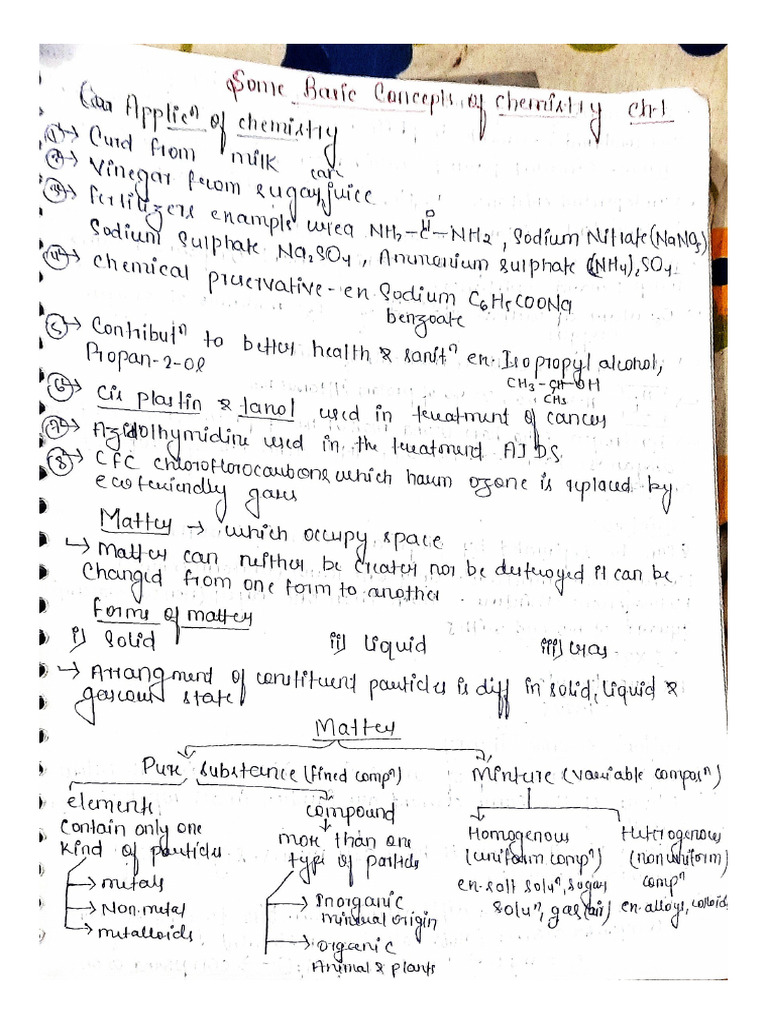 Some Basic Concepts of chemistry Ch-1
Applicⁿ of chemistry
① → Curd from milk
② → Vinegar from sugar cane juice
③ → Fertilizers example urea NH₂-C-NH₂, Sodium Nitrate (NaNO₃)
O
Sodium Sulphate Na₂SO₄, Ammonium sulphate (NH₄)₂SO₄
④ → Chemical preservative - ex Sodium C₆H₅COONa
benzoate
⑤ → Contributⁿ to better health & sanitⁿ ex. Isopropyl alcohol,
Propan-2-ol
CH₃-CH-OH
CH₃
⑥ → Cis plastin & tanol used in treatment of cancer
⑦ → Azidothymidine used in the treatment AIDS
⑧ → CFC chloroflorocarbone which harm ozone is replaced by
ecofriendly gases
Matter → which occupy space
↳ Matter can neither be creater nor be destroyed it can be
changed from one form to another
forms of matter
i) Solid ii) Liquid iii) Gas
↳ Arrangment of constituent particles is diff in solid, liquid &
gaseous state
Matter
Pure substance (fixed compⁿ) Mixture (variable composⁿ)
elements
contain only one
kind of particles
→ metals
→ Non-metal
→ metalloids
compound
more than one
type of particles
→ Inorganic
mineral origin
→ organic
Animal & plants
Homogenous
(uniform compⁿ)
ex-salt soluⁿ, sugar
soluⁿ, gas (air)
Hetrogenous
(non uniform)
compⁿ
ex-alloys, colloids